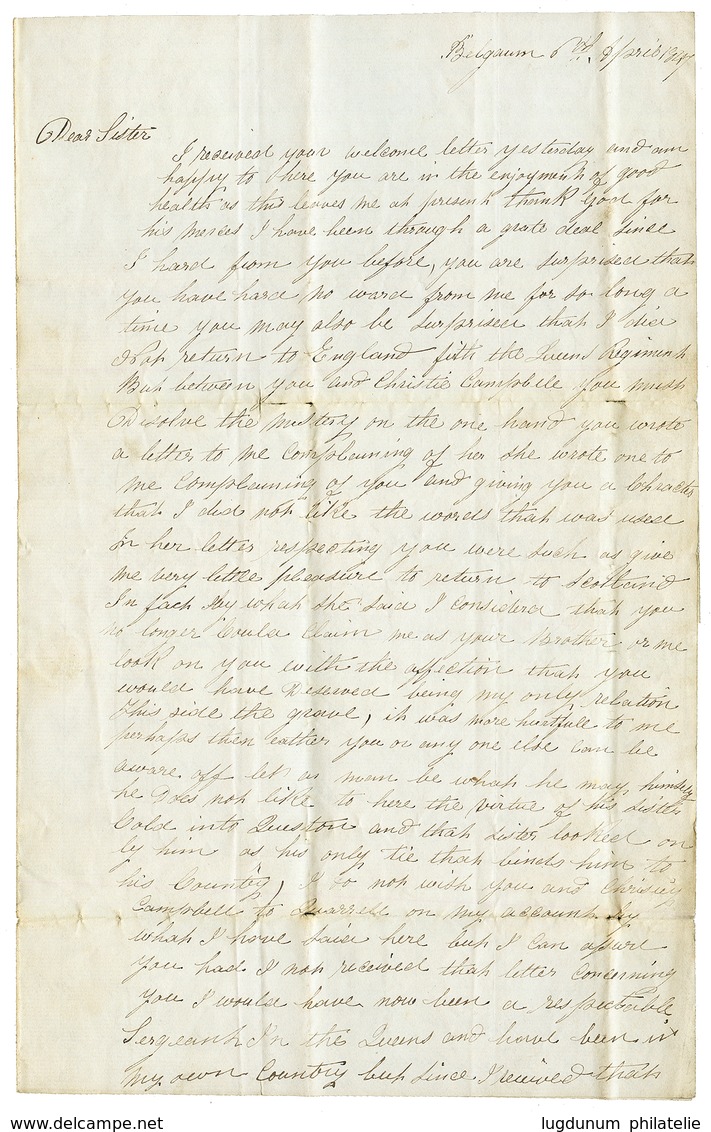 Belgaum April 1847
Dear Sister
I received your welcome letter yesterday and am
happy to here you are in the enjoyment of good
health as this leaves me at present thank God for
his mercies I have been through a grate deal since
I hard from you before, you are surprised that
you have hard no ward from me for so long a
time you may also be surprised that I did
not return to England with the Queens Regiment
But between you and Christie Campbele you must
Disolve the mistery on the one hand you wrote
a letter to me Complaining of her she wrote one to
me Complaining of you and giving you a Chracter
that I did not like the words that was used
In her letter respecting you were such as give
me very little pleasure to return to Scotland
In fact by what she said I considerd that you
no longer Could Claim me as your Brother or me
look on you with the affection that you
would have Deserved being my only relation
this side the grave, it was more hurtfull to me
perhaps then eather you or any one else can be
aware off let a man be what he may, himself
he Does not like to here the virtue of his sister
Cold into Question and that sister looked on
by him as his only tie that binds him to
his Country, I do not wish you and Christiy
Campbell to Quarrell on my account by
what I have said here but I can asure
you had I not received that letter concerning
you I would have now been a respectable
Sergeant In the Queens and have been in
my own Country but since I received that
lugdunum philatelie
www.delcampe.net